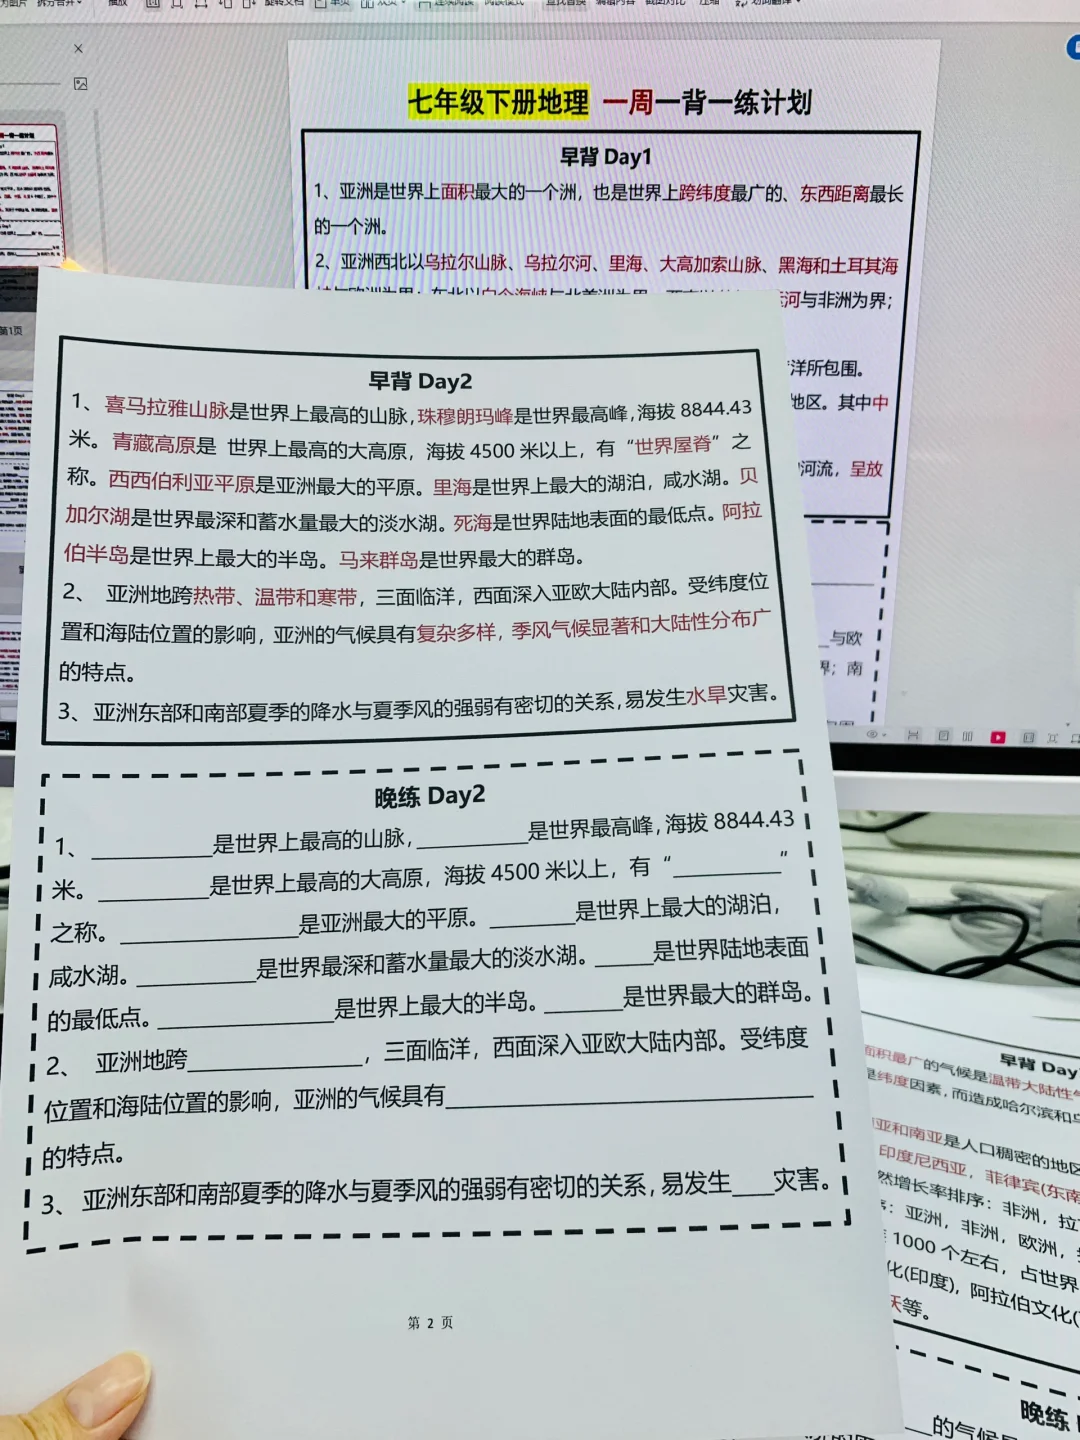 七年级下册地理 一周一背一练计划
早背 Day1
1、亚洲是世界上面积最大的一个洲，也是世界上跨纬度最广的、东西距离最长
的一个洲。
2、亚洲西北以乌拉尔山脉、乌拉尔河、里海、大高加索山脉、黑海和土耳其海
河与非洲为界；
洋所包围。
地区。其中中
河流，呈放
与欧
界；南
第1页
早背 Day2
1、喜马拉雅山脉是世界上最高的山脉，珠穆朗玛峰是世界最高峰，海拔 8844.43
米。青藏高原是 世界上最高的大高原，海拔 4500 米以上，有“世界屋脊”之
称。西西伯利亚平原是亚洲最大的平原。里海是世界上最大的湖泊，咸水湖。贝
加尔湖是世界最深和蓄水量最大的淡水湖。死海是世界陆地表面的最低点。阿拉
伯半岛是世界上最大的半岛。马来群岛是世界最大的群岛。
2、 亚洲地跨热带、温带和寒带，三面临洋，西面深入亚欧大陆内部。受纬度位
置和海陆位置的影响，亚洲的气候具有复杂多样，季风气候显著和大陆性分布广
的特点。
3、亚洲东部和南部夏季的降水与夏季风的强弱有密切的关系，易发生水旱灾害。
晚练 Day2
1、__________是世界上最高的山脉，__________是世界最高峰，海拔 8844.43
米。__________是世界上最高的大高原，海拔 4500 米以上，有“__________”
之称。________________是亚洲最大的平原。________是世界上最大的湖泊，
咸水湖。___________是世界最深和蓄水量最大的淡水湖。_____是世界陆地表面
的最低点。________________是世界上最大的半岛。_______是世界最大的群岛。
2、 亚洲地跨________________，三面临洋，西面深入亚欧大陆内部。受纬度
位置和海陆位置的影响，亚洲的气候具有__________________________________
的特点。
3、亚洲东部和南部夏季的降水与夏季风的强弱有密切的关系，易发生____灾害。
第 2 页
早背 Day
面积最广的气候是温带大陆性气
是纬度因素，而造成哈尔滨和乌
亚和南亚是人口稠密的地区
印度尼西亚，菲律宾(东南
然增长率排序：非洲，拉丁
亚洲，非洲，欧洲，
1000 个左右，占世界
化(印度)，阿拉伯文化(
等。
晚练
的气候是